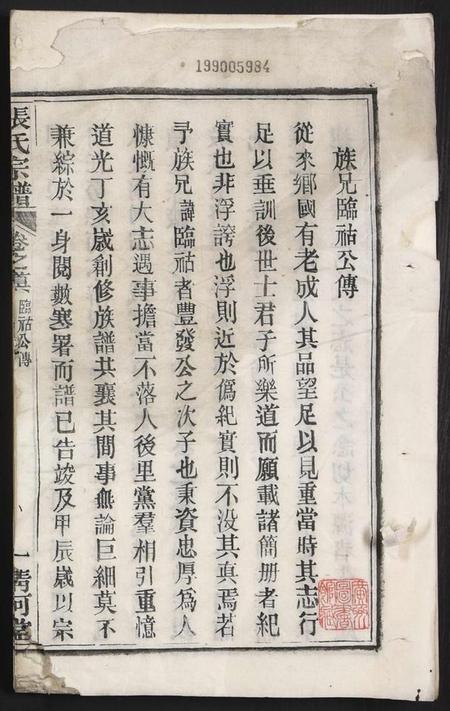 199005984
族兄臨祜公傳
從來鄉國有老成人其品望足以見重當時其志行
足以垂訓後世士君子所樂道而願載諸簡册者紀
實也非浮誇也浮則近於僞紀實則不没其真焉若
予族兄諱臨祜者豐發公之次子也秉資忠厚為人
慷慨有大志遇事擔當不落人後里黨羣相引重憶
道光丁亥歲創修族譜共襄其間事無論巨細莫不
兼綜於一身閱數寒暑而譜已告竣及甲辰歲以宗
張氏宗譜
卷之真
臨祜公傳
一
清河堂